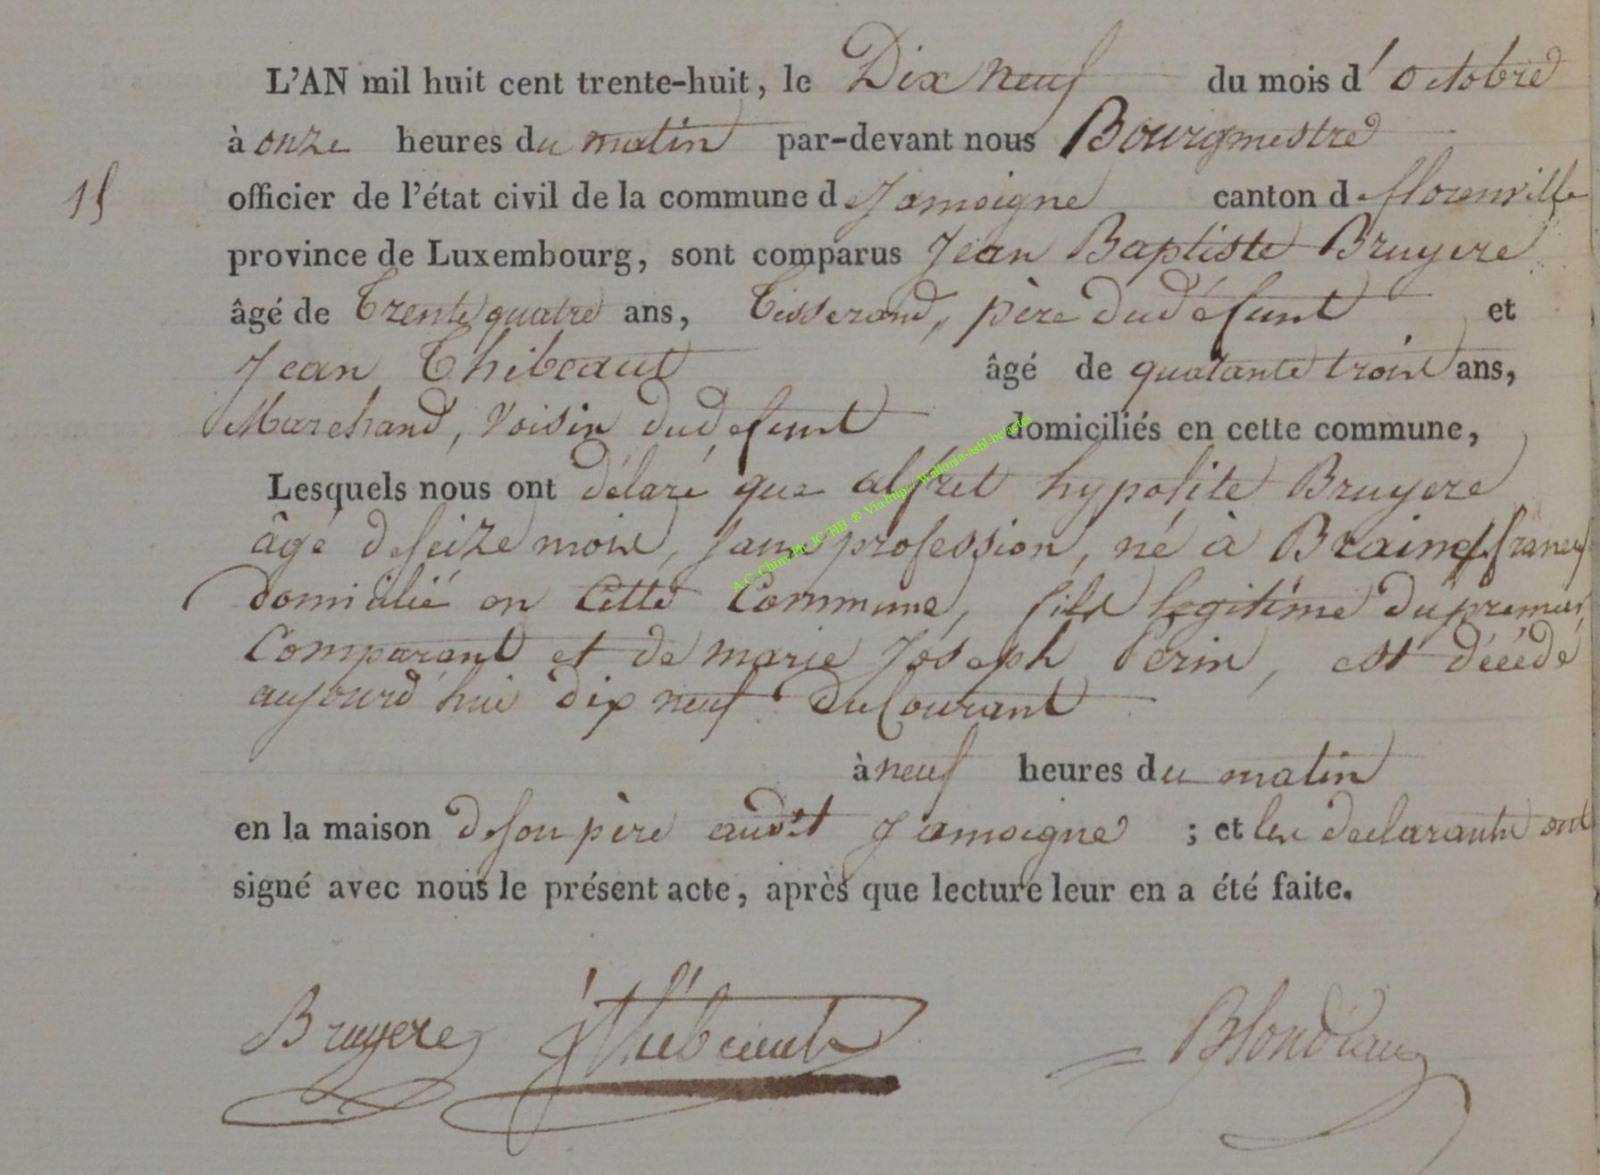 L'AN mil huit cent trente-huit, le Dix neuf du mois d'octobre
à onze heures du matin par-devant nous Bourgmestre
15
officier de l'état civil de la commune de Jamoigne canton de florenville
province de Luxembourg, sont comparus Jean Baptiste Bruyere
âgé de Trente quatre ans, Tisserand, père du défunt et
Jean Thibeaut âgé de quatante trois ans,
Marchand, Voisin du défunt domiciliés en cette commune,
Lesquels nous ont délaré que alfret hypolite Bruyere
âgé de seize mois, sans profession, né à
domicilié en Cette Commune, fils legitime du premier
Comparant et de marie Joseph Perin, est décédé
aujourd'hui dix neuf du Courant
à neuf heures du matin
en la maison de son père audit Jamoigne ; et les declarants ont
signé avec nous le présent acte, après que lecture leur en a été faite.
Bruyere JThibeaut Blondiau